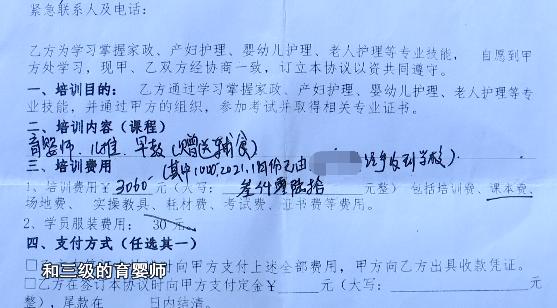 紧急联系人及电话:
乙方为学习掌握家政、产妇护理、婴幼儿护理、老人护理等专业技能, 自愿到甲
方处学习,现甲、乙双方经协商一致,订立本协议以资共同遵守。
一、培训目的: 乙方通过学习掌握家政、产妇护理、婴幼儿护理、老人护理等专
业技能,并通过甲方的组织,参加考试并取得相关专业证书。
二、培训内容(课程)
育婴师、儿推、早教(赠送辅食)
三、培训费用 (其中1000,2021,1月份已由 给手收到学校).
1、培训费用¥3060 元(大写: 叁仟零陆拾 元整)包括培训费、课本费、
场地费、 实操教具、耗材费、考试费、证书费等费用。
2、学员服装费用: 30 元
四、支付方式(任选其一)
时向甲方支付上述全部费用,甲方向乙方出具收款凭证。
和三级的育婴师
□乙方在签订本协议时向甲方支付定金¥ 元(大写: 元
整),尾款在 日内结清。